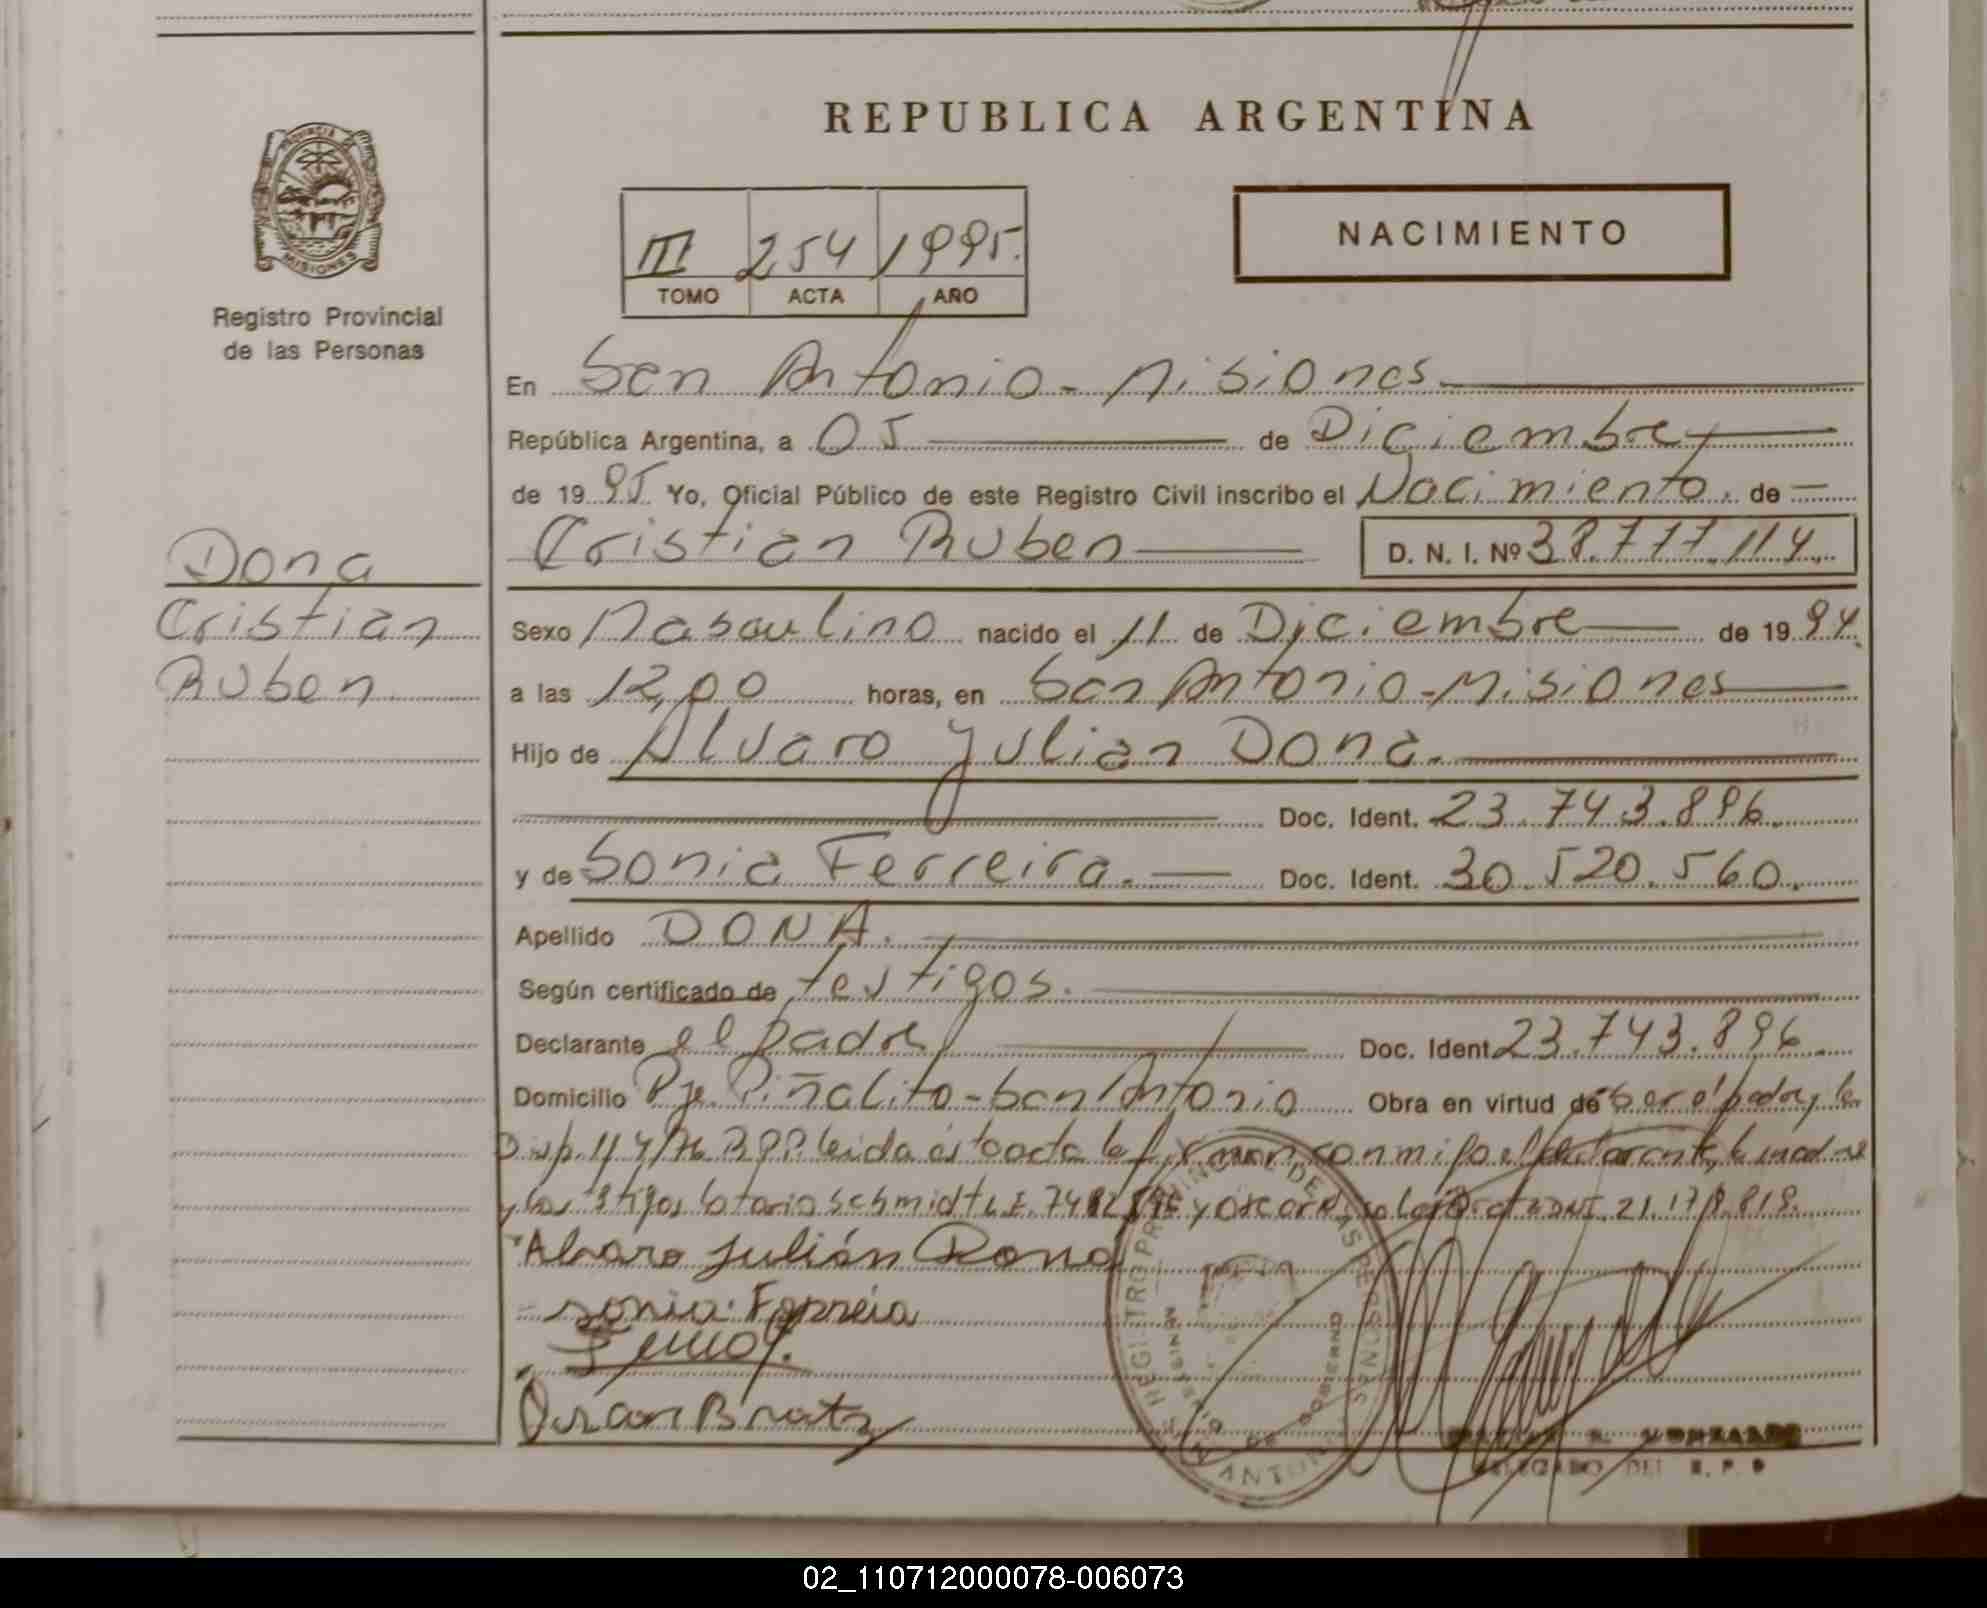 REPUBLICA ARGENTINA
PROVINCIA
MISIONES
Registro Provincial
de las Personas
III 254 1995.
TOMO ACTA AÑO
NACIMIENTO
En San Antonio - Misiones
República Argentina, a 05 de Diciembre
de 1995 Yo, Oficial Público de este Registro Civil inscribo el Nacimiento. de
Cristian Ruben D. N. I. Nº 38.777.114
Dona
Cristian
Ruben
Sexo Masculino nacido el 11 de Diciembre de 1994.
a las 12,00 horas, en San Antonio - Misiones
Hijo de Alvaro Julian Dona.
Doc. Ident. 23.743.896.
y de Sonia Ferreira. Doc. Ident. 30.520.560.
Apellido DONA.
Según certificado de testigos.
Declarante el padre Doc. Ident 23.743.896.
Domicilio Pje. Piñalito - San Antonio Obra en virtud de ser el padre y la
Disp. 114/76 R.P.P. leida esta acta la firman conmigo el declarante, la madre
y los Schmidt L.E. DNI. 21.178.818.
Alvaro Julián Dona
sonia Ferreia
Oscar Bratz
REGISTRO PROVINCIAL DE LAS PERSONAS
MINISTERIO DE GOBIERNO
DELEGADO DEL R. P. P
02_110712000078-006073